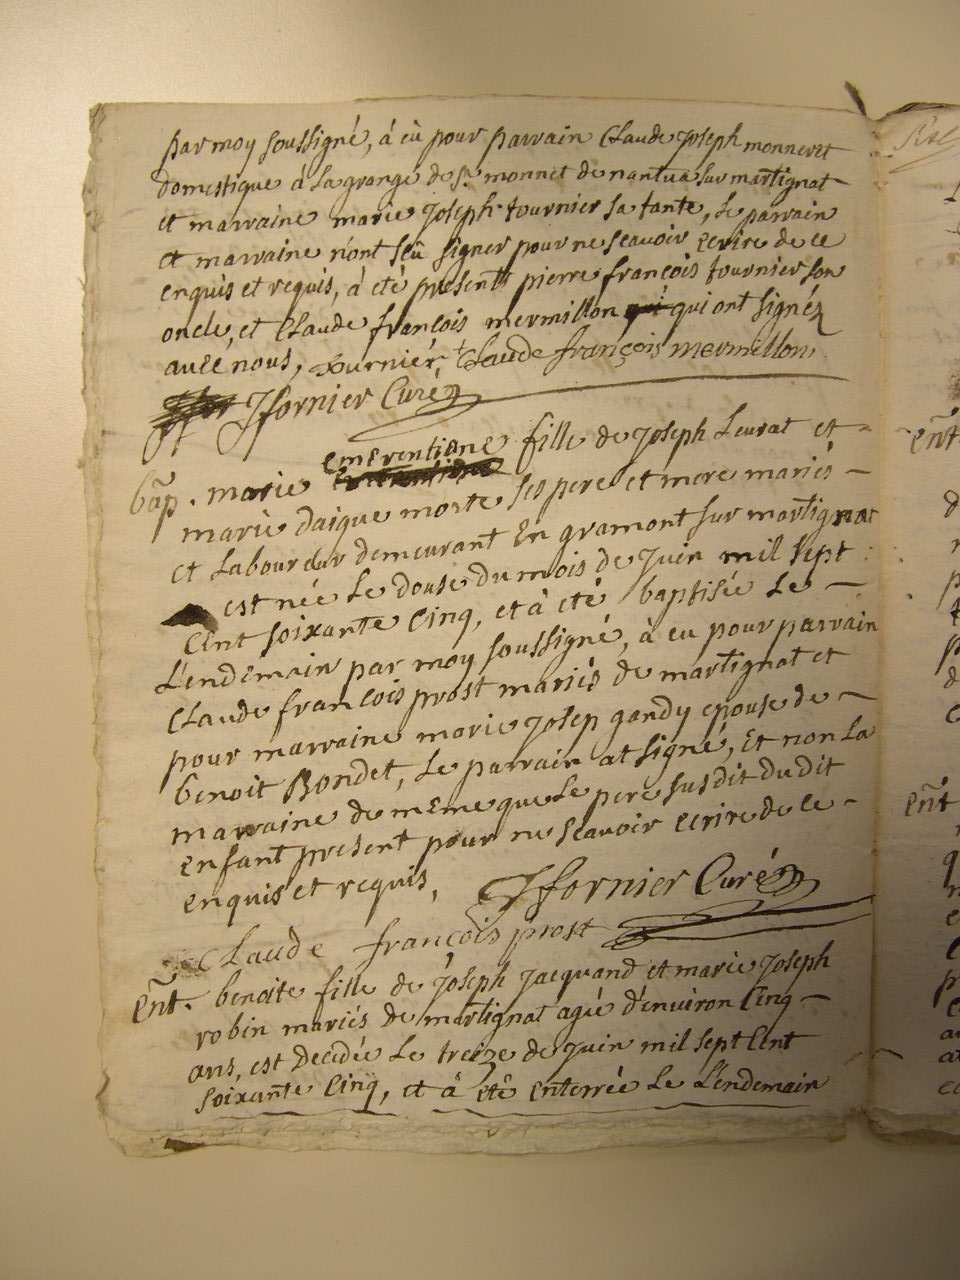 par moy soussigné, à eù pour parrain Claude joseph monneret
domestique à La grange de Sr monnet de nantua sur martignat
et marraine marie joseph tournier sa tante, Le parrain
et marraine n'ont sçû signer pour ne scavoir ecrire de ce
enquis et requis, à eté present pierre françois tournier son
oncle, et Claude françois mermillon qui ont signéz
avec nous, turnier, Claude françois mermillon
Jfornier Curé
emerentiane
bap. marie fille de joseph Leurat et
marie daigue morte ses pere et mere mariés
et Laboureur demeurant En gramont sur martignat
est née Le douse du mois de juin mil sept
Cent soixante Cinq, et à eté baptisée Le
L'endemain par moy soussigné, à eu pour parrain
Claude françois prost mariés de martignat et
pour marraine marie josep gandy epouse de
benoit Bondet, Le parrain at signé, et non La
marraine de meme que Le pere susdit dudit
enfant present pour ne scavoir ecrire de ce
enquis et requis, Jfornier Curé
Claude françois prost
Ent. benoite fille de joseph jacquand et marie joseph
robin mariés de martignat agée d'environ Cinq
ans, est decidée Le treize de juin mil sept Cent
soixante Cinq, et à été enterrée Le L'endemain
Ent
Ent